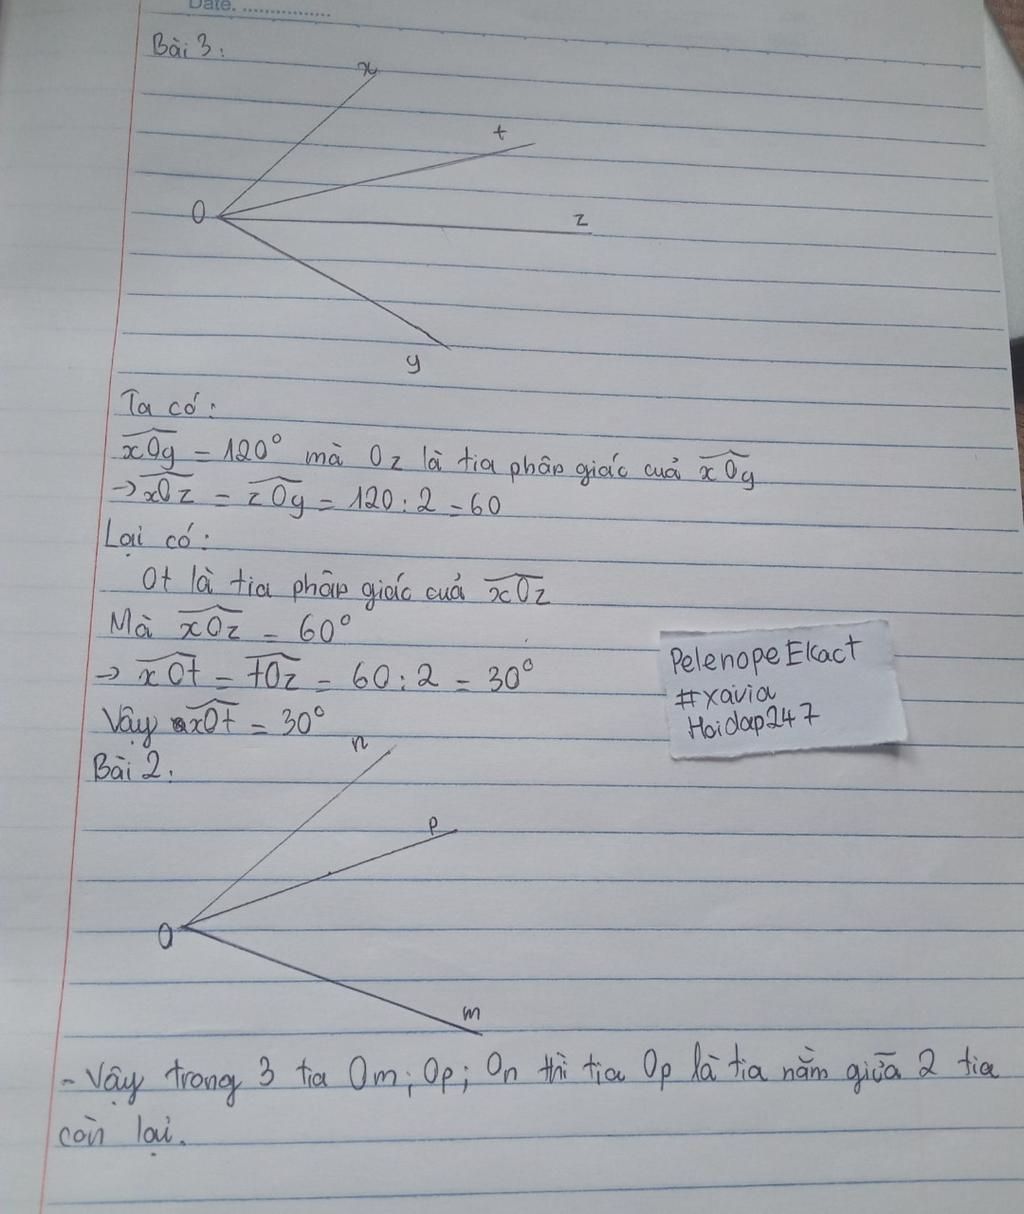 Date. ................
Bài 3:
x
t
O
z
y
Ta có:
xOy = 120° mà Oz là tia phân giác cuả xOy
→ xOz = zOy = 120 : 2 = 60
Lại có:
Ot là tia phân giác cuả xOz
Mà xOz = 60°
→ xOt = tOz = 60 : 2 = 30°
Vậy xOt = 30°
PelenopeEkact
#xavia
Hoidap247
n
Bài 2:
p
O
m
- Vậy trong 3 tia Om; Op; On thì tia Op là tia nằm giữa 2 tia
còn lại.